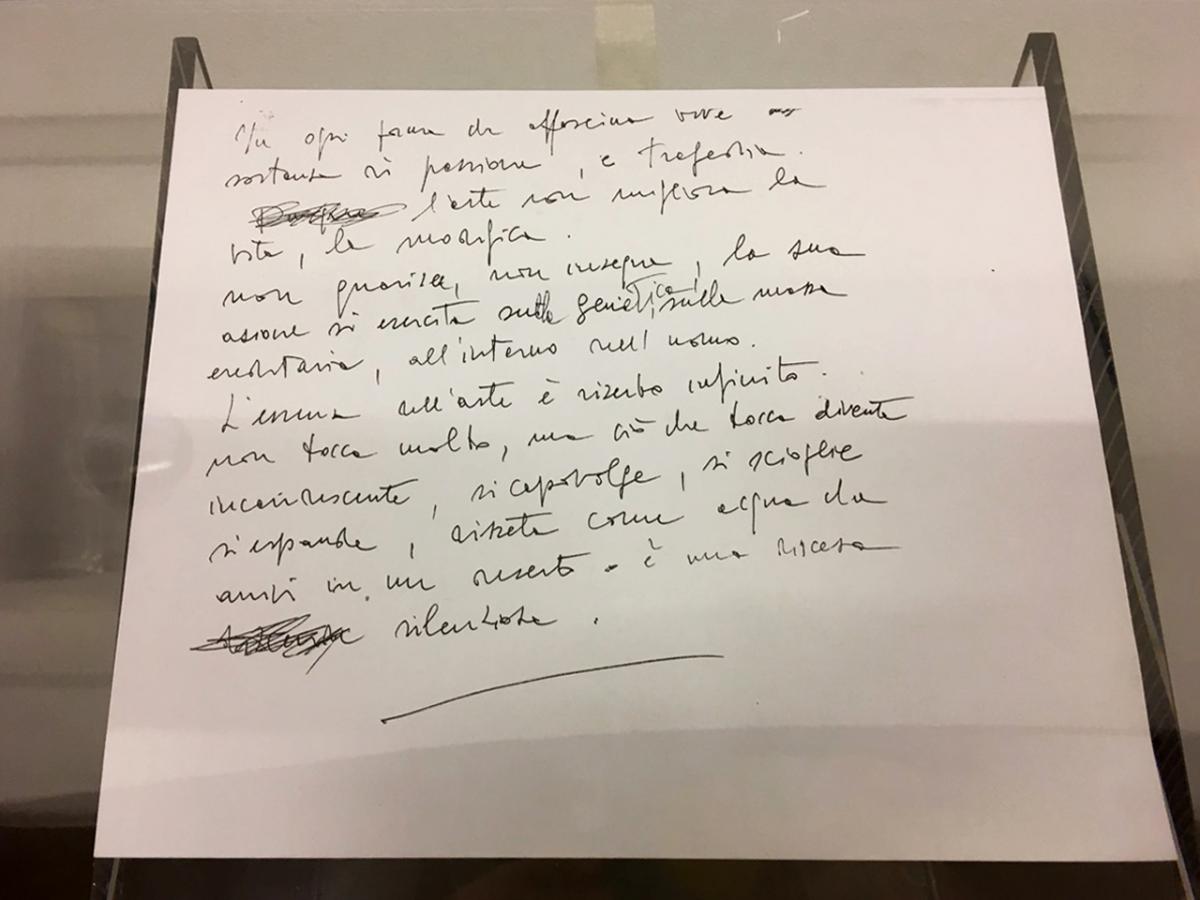 In ogni forma che affascina vive
sostanza di passione, e tragedia.
l'arte non migliora la
vita, la modifica.
non guarisce, non insegna, la sua
azione si esercita sulla genetica, sulla massa
ereditaria, all'interno dell'uomo.
L'essenza dell'arte è riserbo infinito.
non tocca molto, ma ciò che tocca diventa
incandescente, si capovolge, si scioglie
si espande, disseta come acqua da
anni in un deserto. è una discesa
silenziosa.